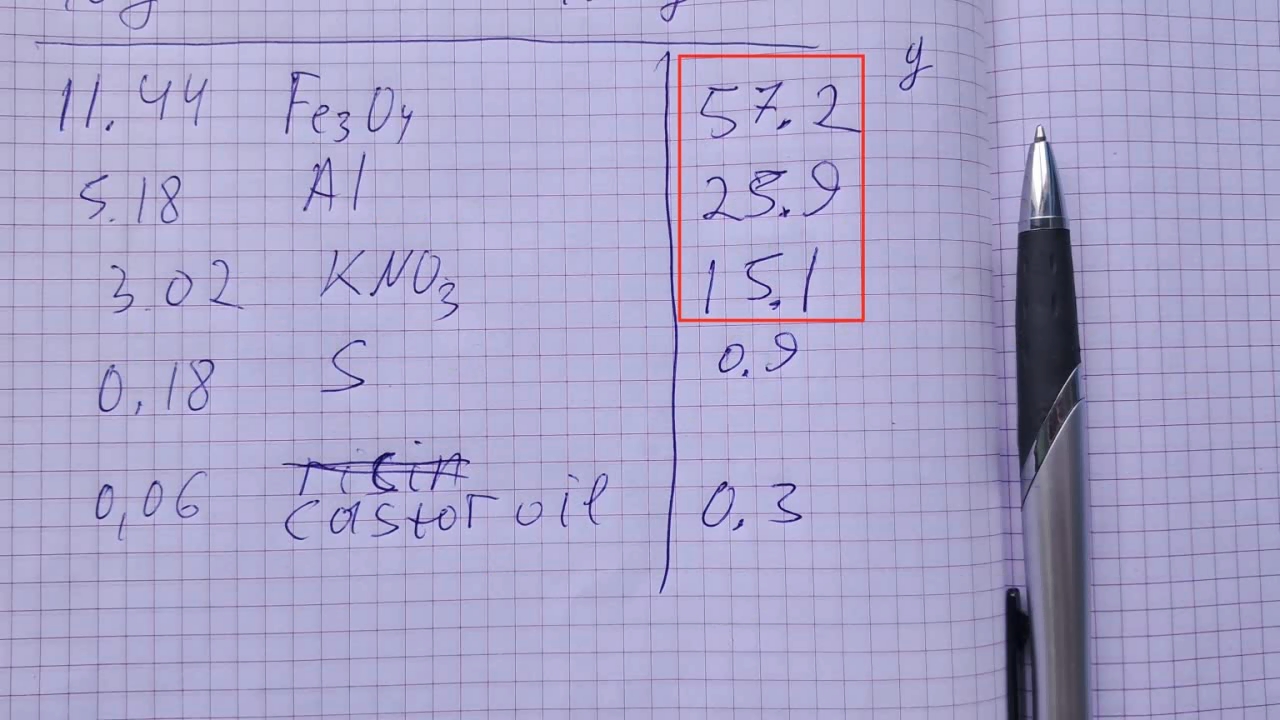 11.44 Fe3O4 57.2 g
5.18 Al 25.9
3.02 KNO3 15.1
0,18 S 0.9
0,06 castor oil 0.3